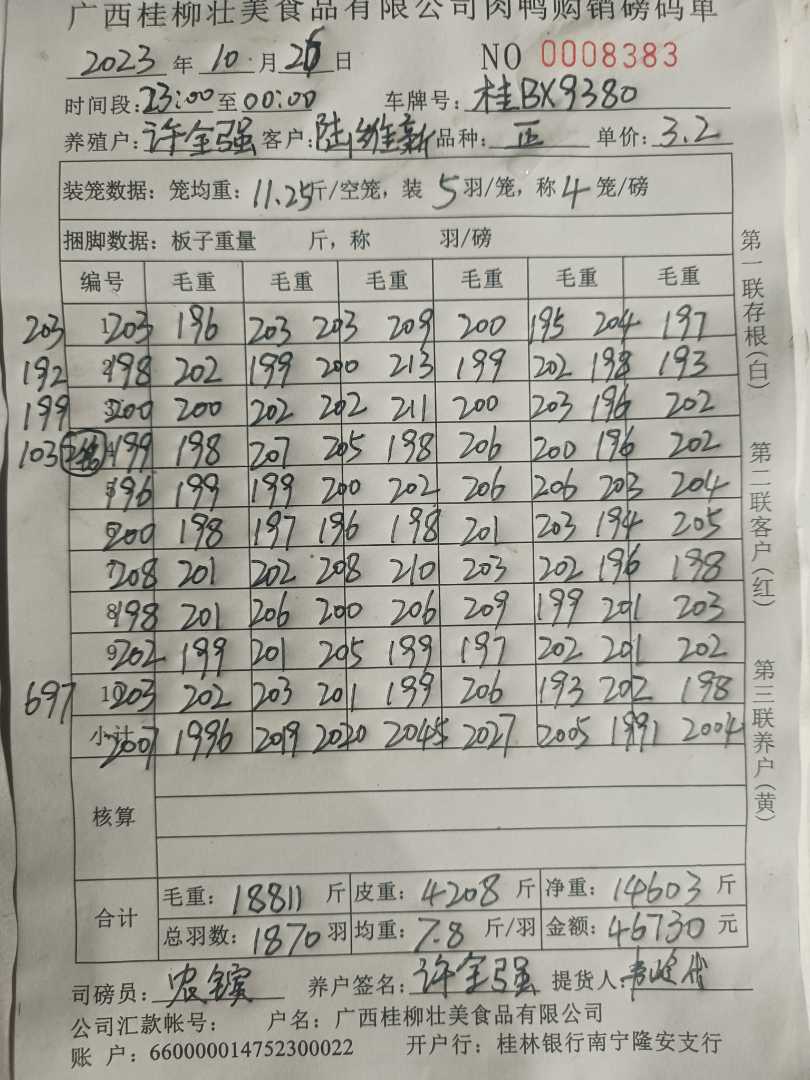 广西桂柳壮美食品有限公司肉鸭购销磅码单
2023 年 10 月 26 日 NO 0008383
时间段: 23:00 至 00:00 车牌号: 桂BX9380
养殖户: 许全强 客户: 陆维新 品种: 正 单价: 3.2
装笼数据: 笼均重: 11.25 斤/空笼, 装 5 羽/笼, 称 4 笼/磅
捆脚数据: 板子重量 斤, 称 羽/磅
编号 毛重 毛重 毛重 毛重 毛重 毛重
203 1 203 196 203 203 209 200 195 204 197
192 2 198 202 199 200 213 199 202 198 193
199 3 200 200 202 202 211 200 203 196 202
103 4 199 198 207 205 198 206 200 196 202
5 196 199 199 200 202 206 206 203 204
6 200 198 197 196 198 201 203 194 205
7 208 201 202 208 210 203 202 196 198
8 198 201 206 200 206 209 199 201 203
9 202 199 201 205 199 197 202 201 202
697 10 203 202 203 201 199 206 193 202 198
小计 2007 1996 2019 2020 2045 2027 2005 1991 2004
核算
合计 毛重: 18811 斤 皮重: 4208 斤 净重: 14603 斤
总羽数: 1870 羽 均重: 7.8 斤/羽 金额: 46730 元
司磅员: 养户签名: 许全强 提货人:
公司汇款帐号: 户名: 广西桂柳壮美食品有限公司
账 户: 660000014752300022 开户行: 桂林银行南宁隆安支行
第一联存根(白)
第二联客户(红)
第三联养户(黄)